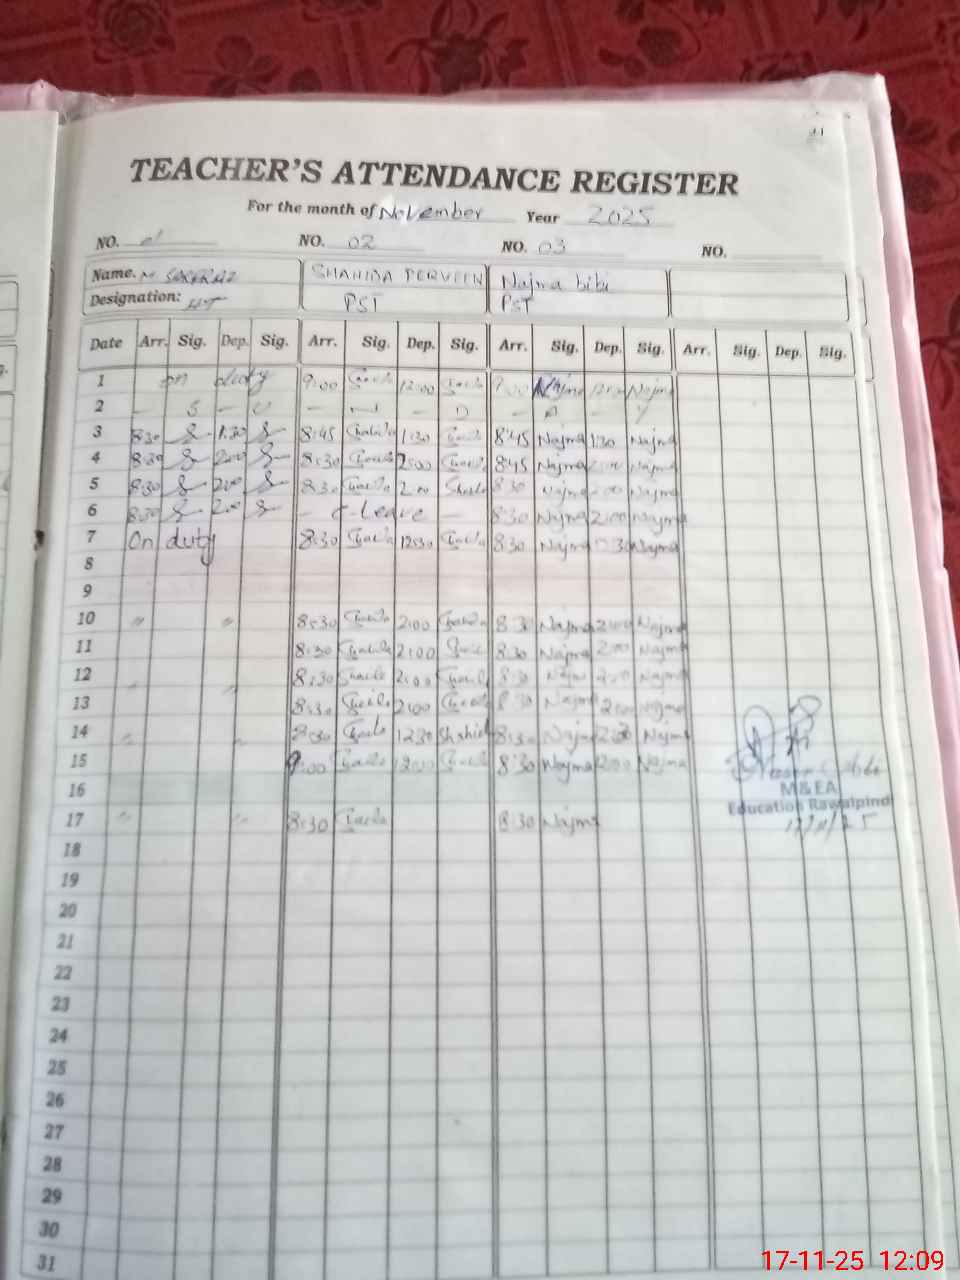 TEACHER'S ATTENDANCE REGISTER
For the month of November Year 2025
NO. 01 NO. 02 NO. 03 NO.
Name. SHAHIDA PERVEEN Najma bibi
Designation: PST PST
Date Arr. Sig. Dep. Sig. Arr. Sig. Dep. Sig. Arr. Sig. Dep. Sig. Arr. Sig. Dep. Sig.
1 on duty 9:00 12:00 9:00 Najma Najma
2 – S – U – N – D – A – Y
3 8:30 1:30 8:45 Shahida 1:30 8:45 Najma 1:30 Najma
4 8:30 2:00 8:30 2:00 8:45 Najma Najma
5 8:30 2:00 8:30 2:00 8:30 Najma 2:00 Najma
6 8:30 2:00 – Leave – 8:30 Najma 2:00 Najma
7 On duty 8:30 12:30 8:30 Najma 12:30 Najma
8
9
10 " " 8:30 2:00 8:30 Najma 2:00 Najma
11 8:30 2:00 8:30 Najma 2:00 Najma
12 8:30 2:00 8:30 Najma 2:00 Najma
13 " " 8:30 2:00 8:30 Najma 2:00 Najma
14 " " 8:30 12:30 Shahid 8:30 Najma Najma
15 9:00 12:00 8:30 Najma 12:00 Najma
16
M&EA
Education Rawalpindi
17 " " 8:30 8:30 Najma
17/11/25
18
19
20
21
22
23
24
25
26
27
28
29
30
31
17-11-25 12:09